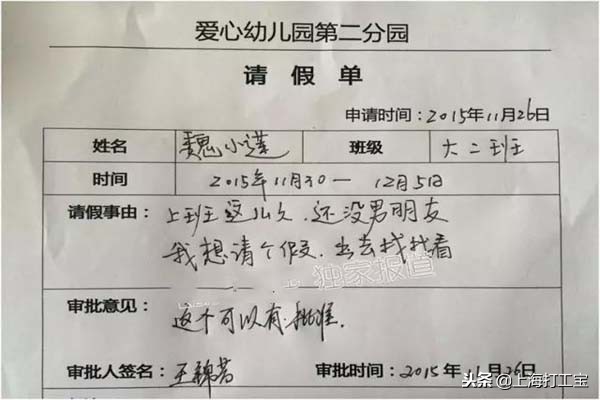 爱心幼儿园第二分园
请 假 单
申请时间：2015年11月26日
姓名 魏小莲 班级 大二班
时间 2015年11月30— 12月5日
请假事由：上班这么久，还没男朋友
我想请个假，出去找找看
独家报道
审批意见：这个可以有，批准.
审批人签名：王锦 审批时间：2015年11月26日
头条@上海打工宝